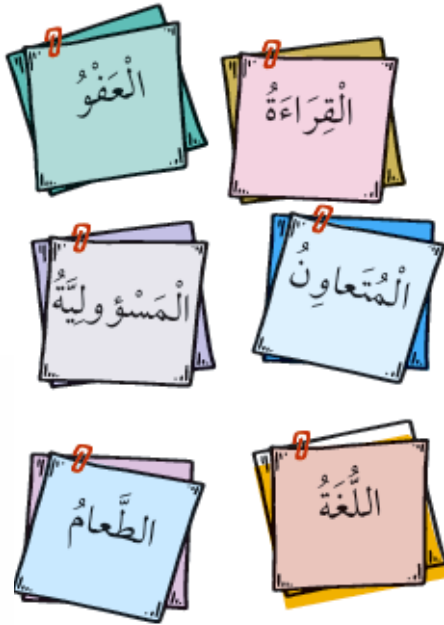 الْقِرَاءَةُ
الْعَفْوُ
الْمُتَعاوِنُ
الْمَسْؤولِيَّةُ
اللُّغَةُ
الطَّعامُ